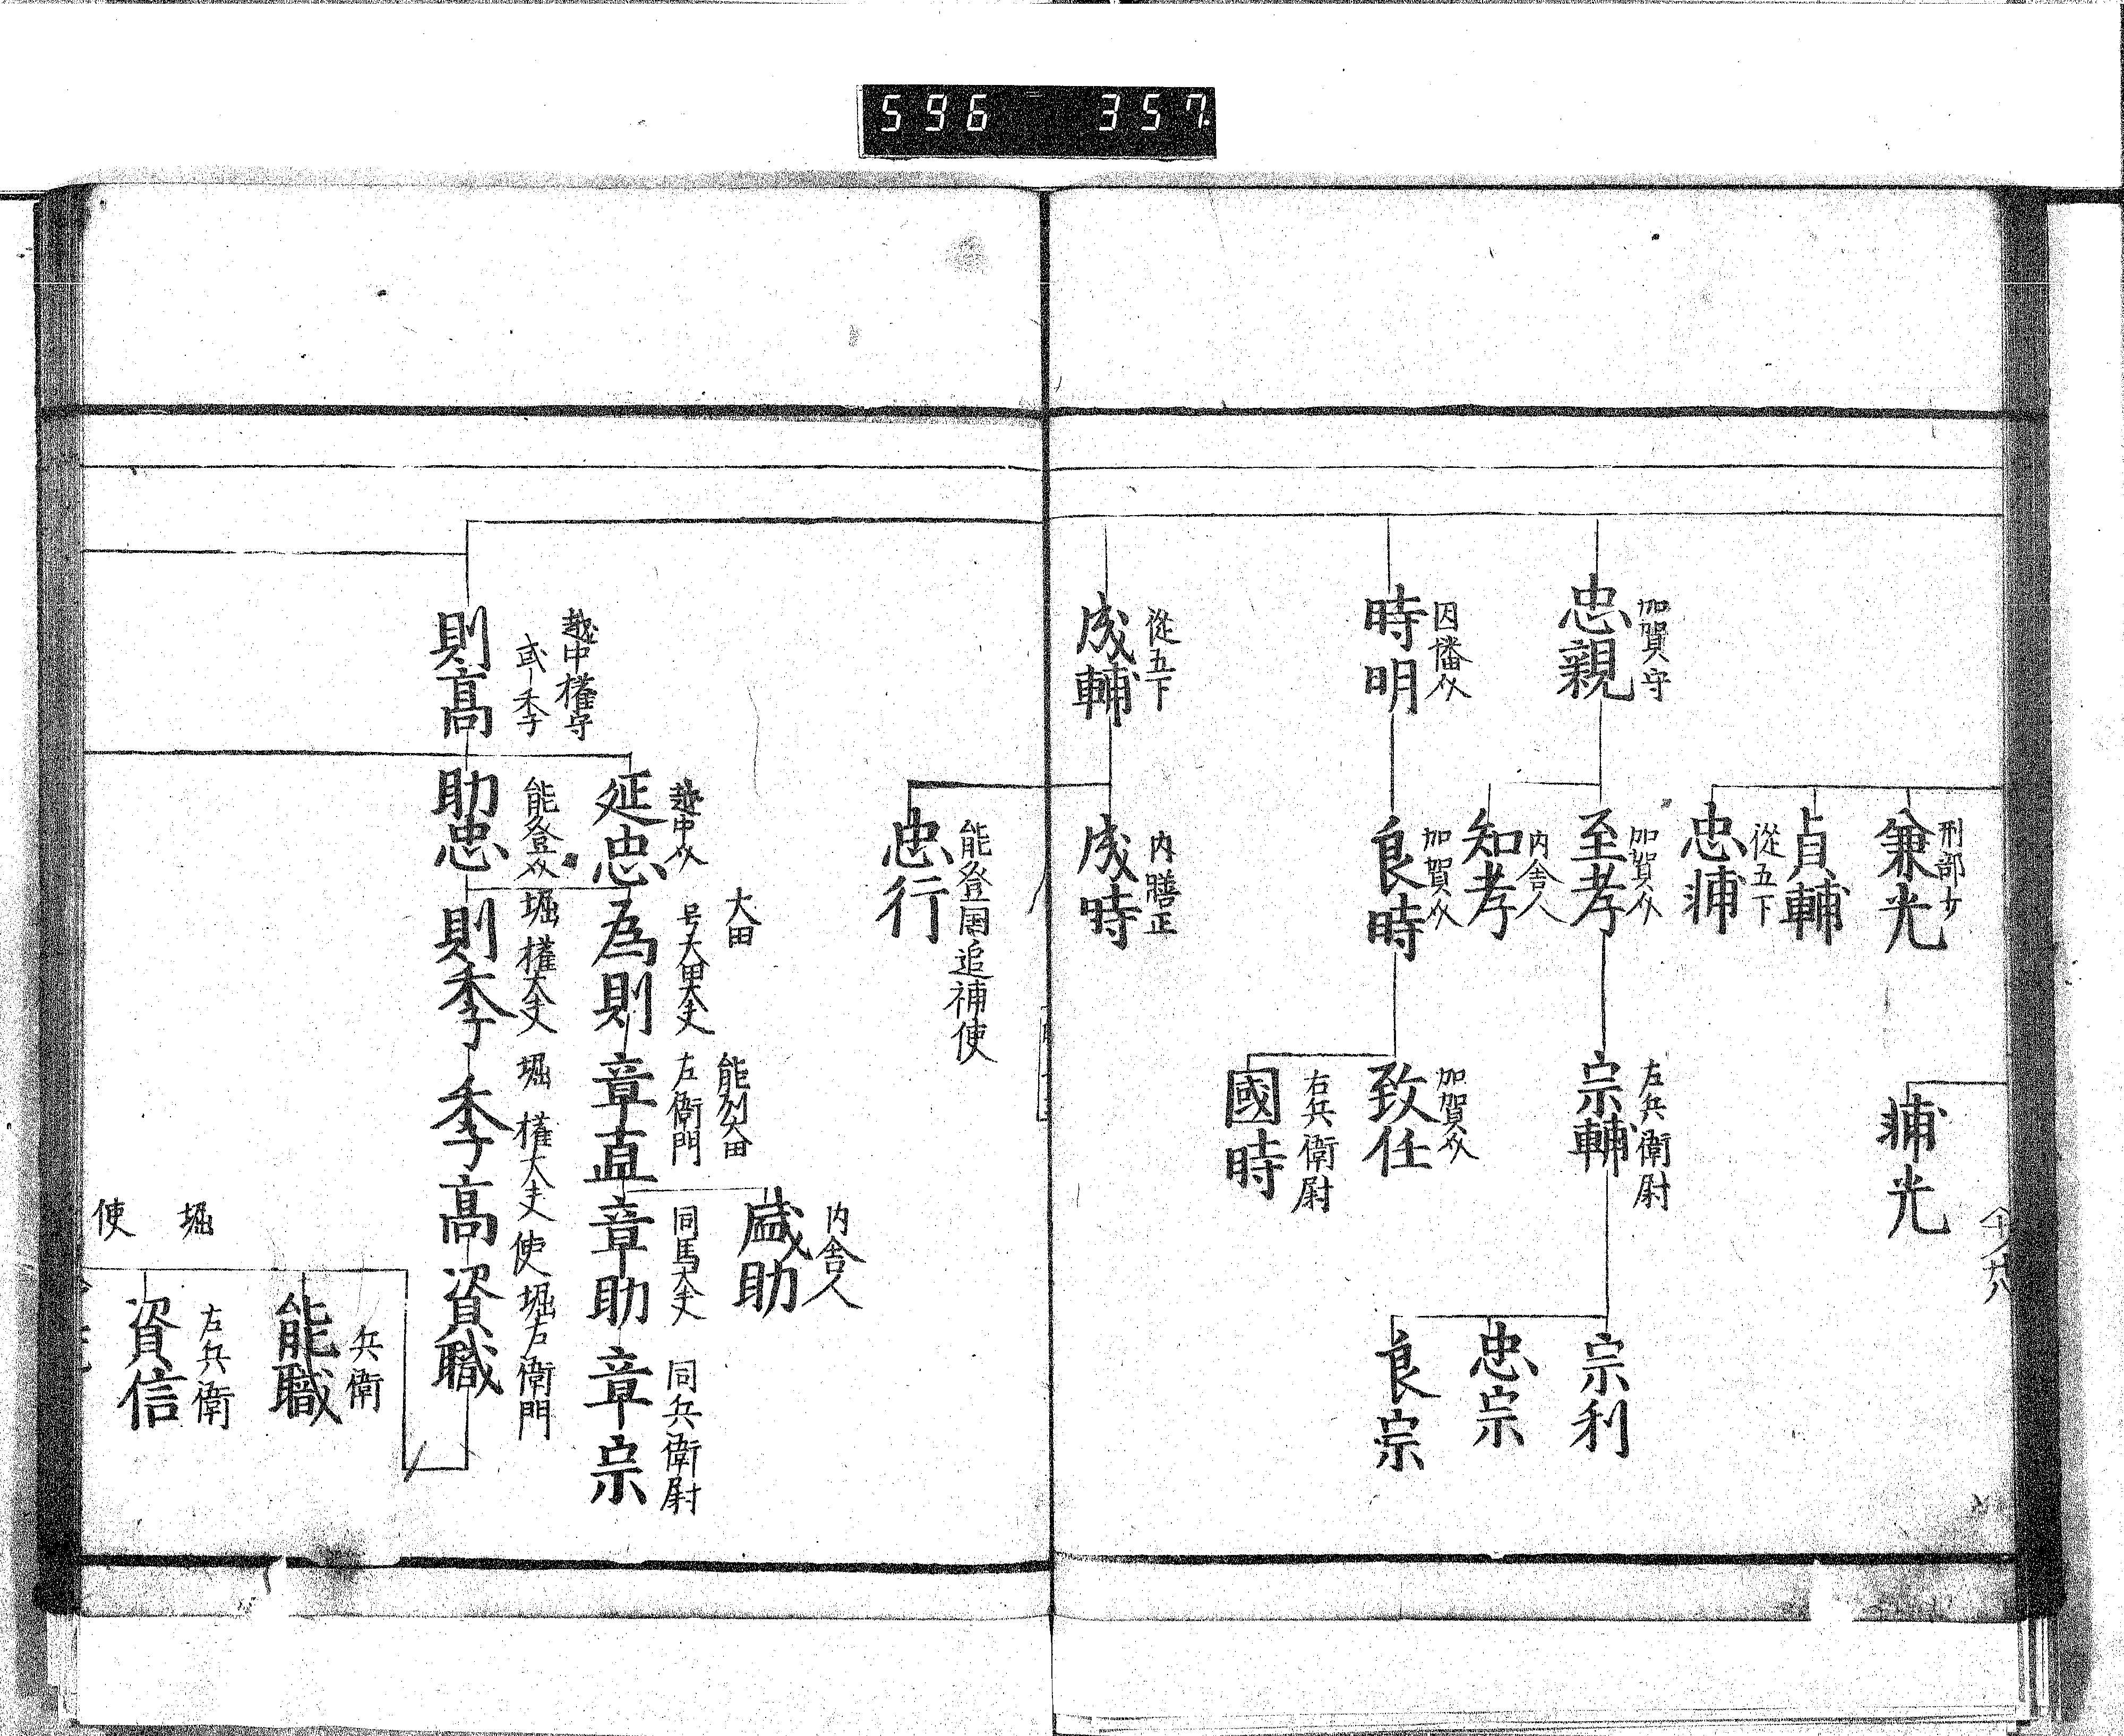 596 357
刑部少
兼光
貞輔
從五下
忠輔
輔光
加賀守
忠親
加賀介
至孝
内舎人
知孝
左兵衛尉
宗輔
宗利
忠宗
良宗
因幡介
時明
加賀介
良時
加賀介
致任
右兵衛尉
國時
從五下
成輔
内膳正
成時
能登國追補使
忠行
越中權守
或季
則高
越中介
延忠
大田
号大田大夫
為則
能州大田
左衛門
章直
内舎人
盛助
同馬大夫
章助
同兵衛尉
章宗
能登介
助忠
堀權大夫
則季
堀權大夫
季高
使堀右衛門
資職
兵衛
能職
堀
左兵衛
資信
使